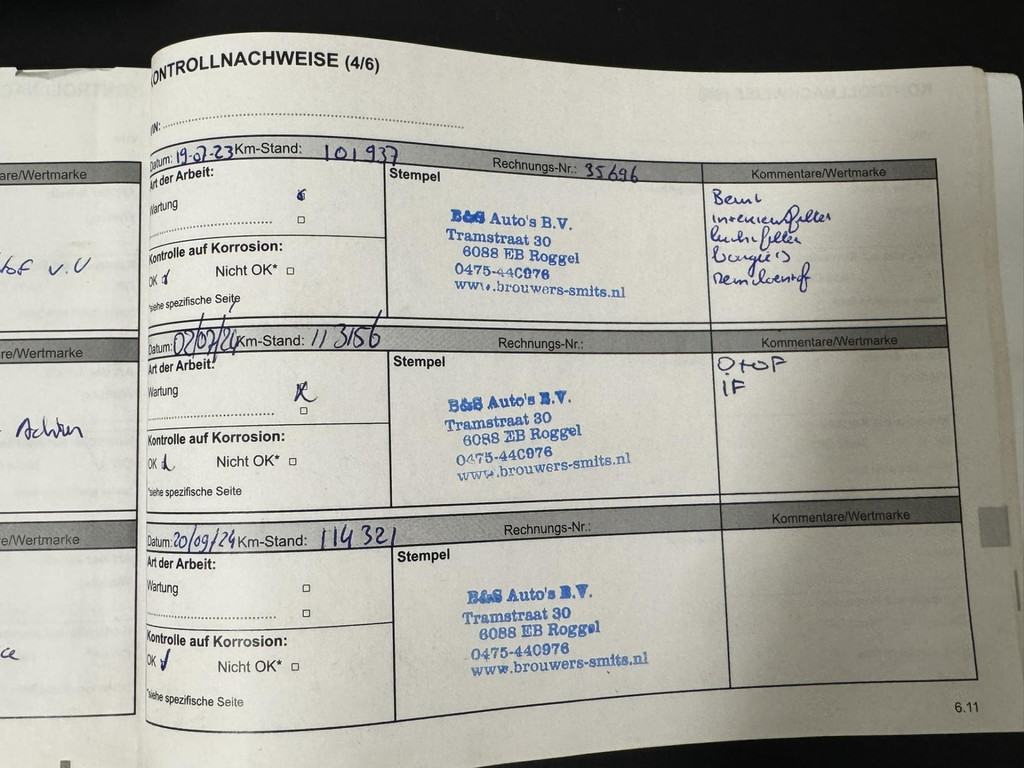 KONTROLLNACHWEISE (4/6)
VIN:
Datum: 19-07-23 Km-Stand: 101937 Rechnungs-Nr.: 35696 Kommentare/Wertmarke
Art der Arbeit:
Wartung
Kontrolle auf Korrosion:
OK Nicht OK*
*siehe spezifische Seite
Stempel
B&S Auto's B.V.
Tramstraat 30
6088 EB Roggel
0475-440976
www.brouwers-smits.nl
Beurt
interieurfilter
luchtfilter
bougie's
Datum: 02/07/24 Km-Stand: 113156 Rechnungs-Nr.: Kommentare/Wertmarke
Art der Arbeit:
Wartung
Kontrolle auf Korrosion:
OK Nicht OK*
*siehe spezifische Seite
Stempel
B&S Auto's B.V.
Tramstraat 30
6088 EB Roggel
0475-440976
www.brouwers-smits.nl
O+OF
IF
Datum: 20/09/24 Km-Stand: 114321 Rechnungs-Nr.: Kommentare/Wertmarke
Art der Arbeit:
Wartung
Kontrolle auf Korrosion:
OK Nicht OK*
*siehe spezifische Seite
Stempel
B&S Auto's B.V.
Tramstraat 30
6088 EB Roggel
0475-440976
www.brouwers-smits.nl
6.11
are/Wertmarke
v.v
re/Wertmarke
e/Wertmarke
ce